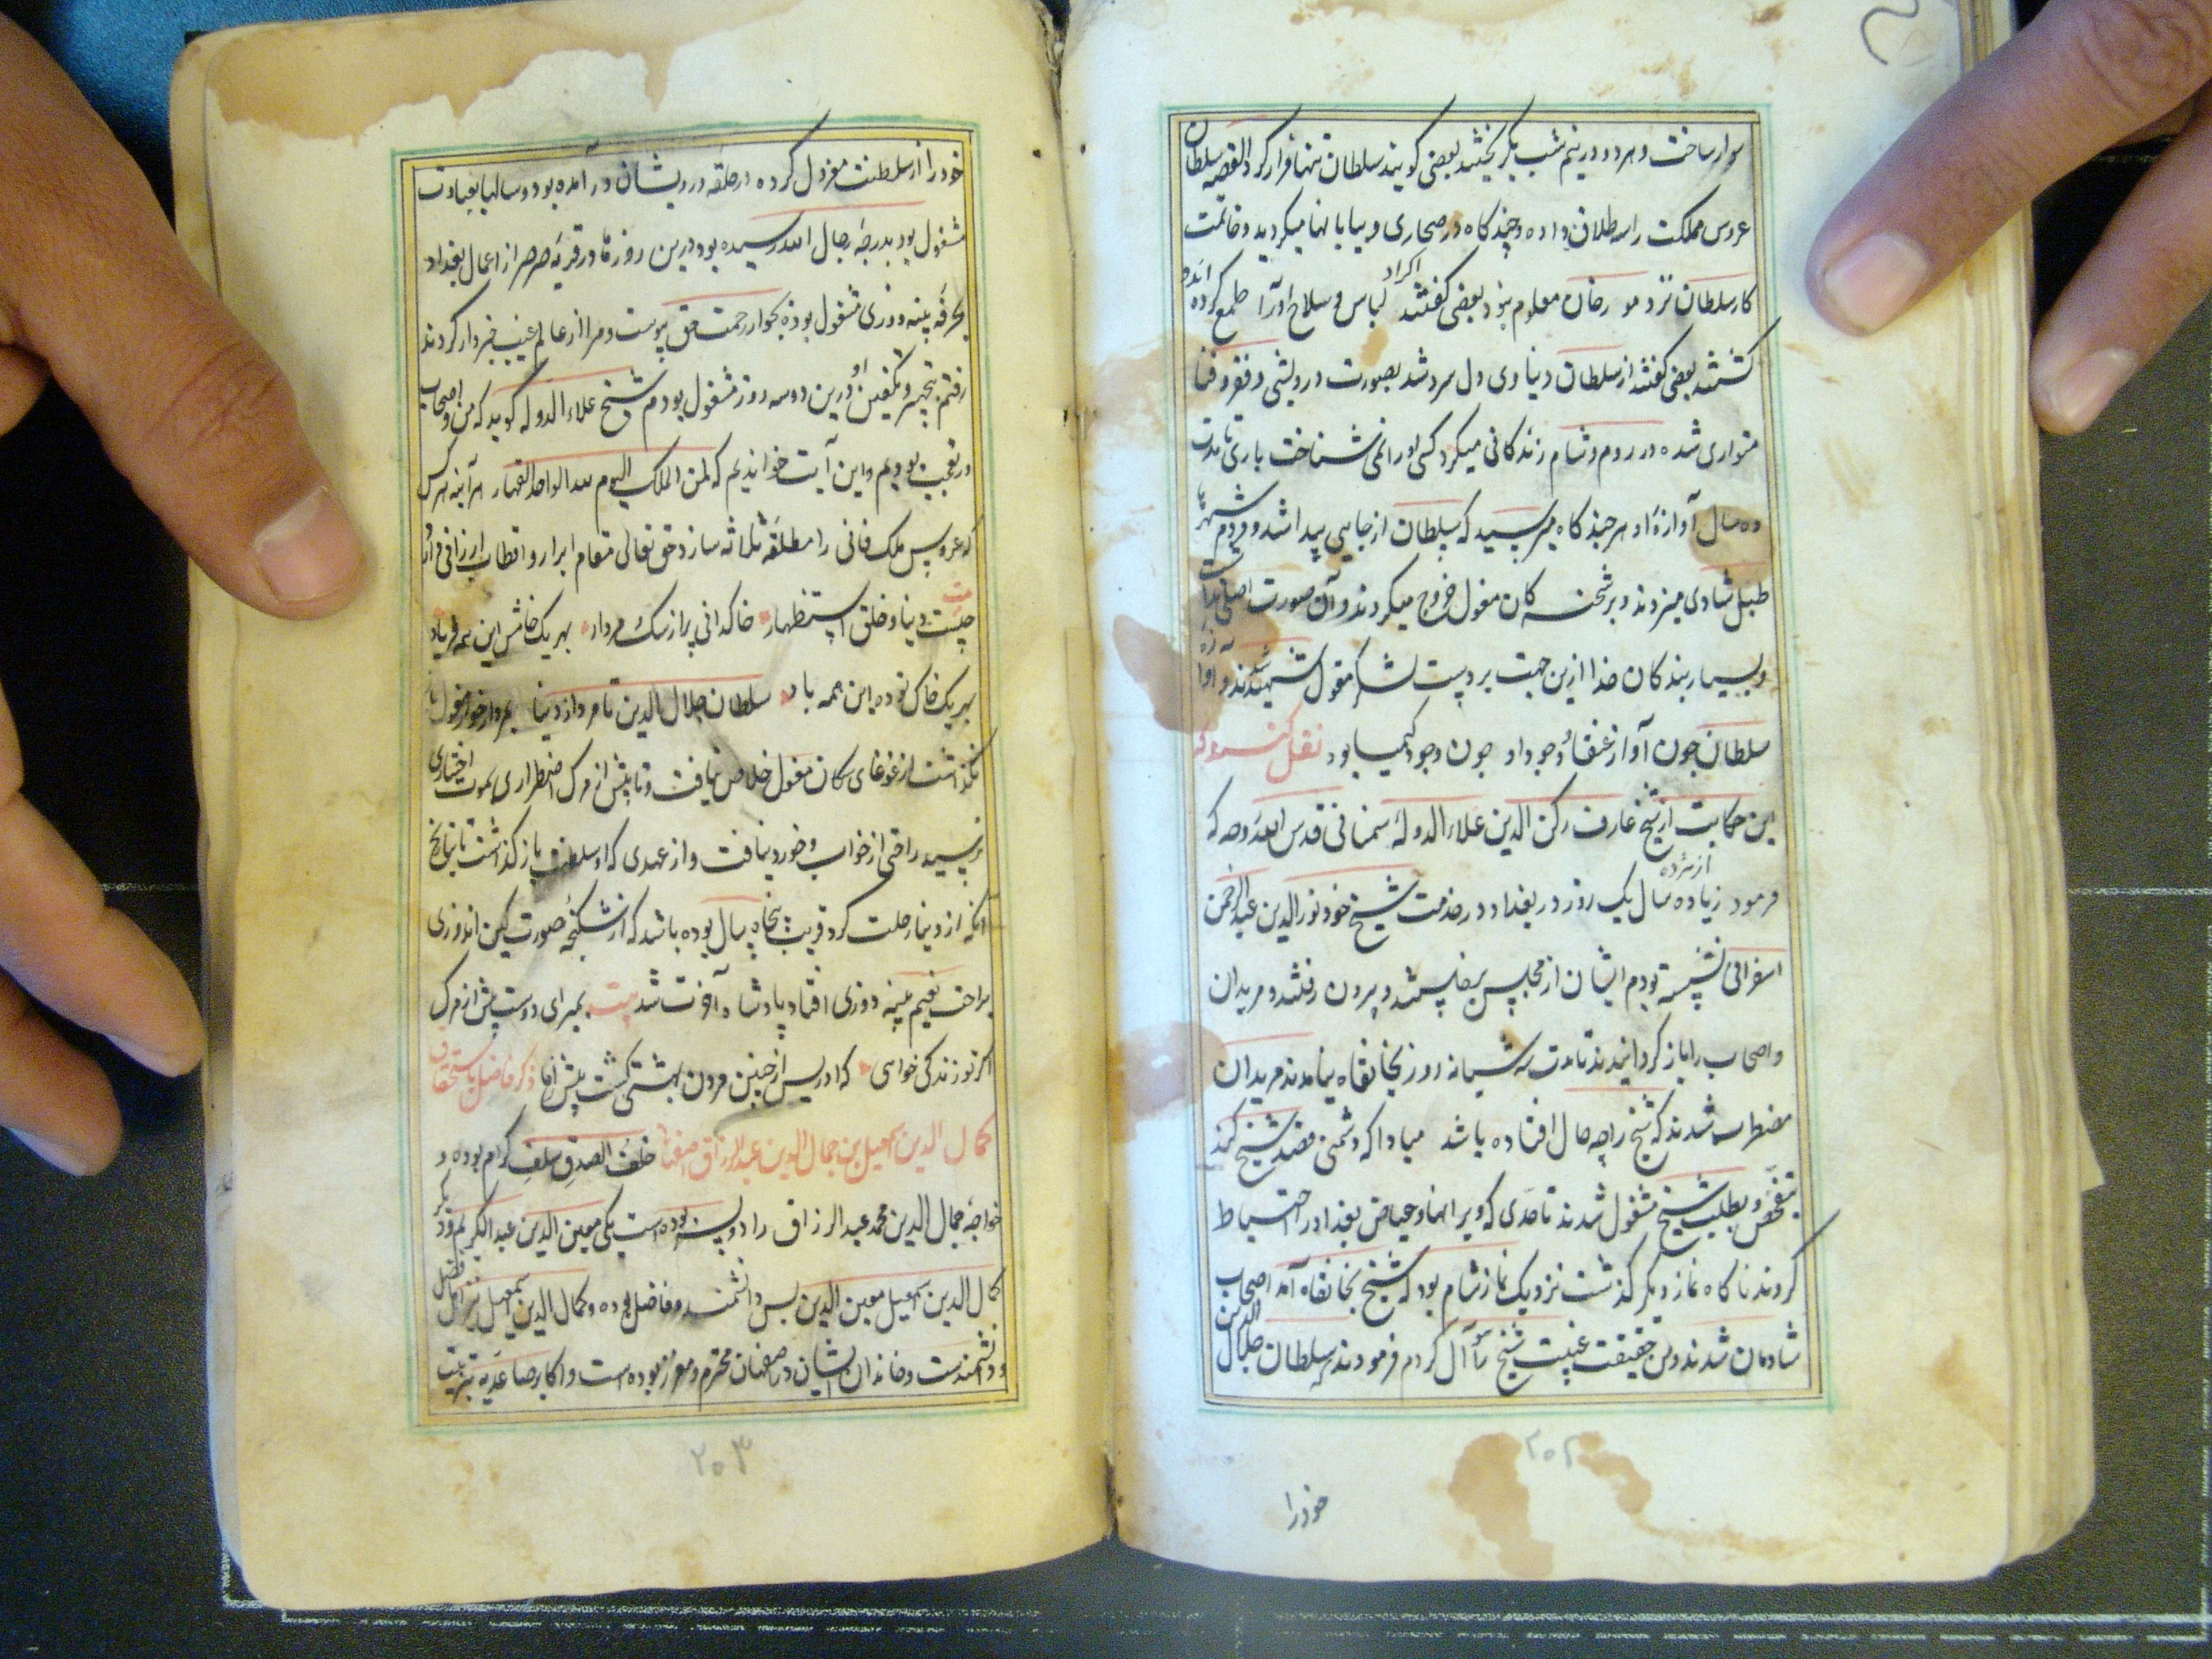 سوار ساخت و هر دو در نیم شب بگریختند بعضی گویند سلطان تنها فرار کرد القصه سلطان
عروس مملکت را سه طلاق داده و چند گاه در صحاری و بیابانها میگردید و خاتمت
کار سلطان نزد مورخان معلوم نبود بعضی گفتند اکراد لباس و سلاح او را طمع کرده اند و
کشتند بعضی گفتند از سلطان دنیاوی دل سرد شد بصورت درویشی و فقر و فنا
متواری شده در روم و شام زندگانی میکرد کسی او را نمی شناخت باری تا مدت
ده سال آوازهٔ او هر چند گاه میرسید که سلطان از جایی پیدا شد و مردم شهر
طبل شادی میزدند و بر شحنه کان مغول خروج میکردند و آن صورت اصلی نداشت
و بسیار بندگان خدا ازین جهت بر دست لشکر مغول شهید شدند و آوازه
سلطان چون آواز عنقا و وجود او چون وجود کیمیا بود نقل کنند که
این حکایت از شیخ عارف رکن الدین علاء الدوله سمنانی قدس الله روحه که
فرمود زیاده از نرده سال یک روز در بغداد در خدمت شیخ خود نور الدین عبد الرحمن
اسفراینی نشسته بودم ایشان از مجلس برخاستند و بیرون رفتند و مریدان
و اصحاب را باز گردانیدند تا مدت سه شبانه روز بخانقاه نیامدند مریدان
مضطرب شدند که شیخ را چه حال افتاده باشد مبادا که دشمنی قصد شیخ کند
بتفحص و بطلب شیخ مشغول شدند تا حدی که ویرانها و حیاض بغداد را احتیاط
کردند ناگاه نماز دیگر گذشت نزدیک نماز شام بود که شیخ بخانقاه آمد اصحاب
شادمان شدند و من حقیقت غیبت شیخ سؤال کردم فرمودند که سلطان جلال الدین
خود را
۲۰۲
خود را از سلطنت معزول کرده در حلقه درویشان در آمده بود و سالها بعبادت
مشغول بود بدرجهٔ رجال الله رسیده بود درین روزها در قریه صرصر از اعمال بغداد
بحرفه پینه دوزی مشغول بوده بجوار رحمت حق پیوست و مرا از عالم غیب خبردار کردند
رفتم بتجهیز و تکفین او درین دو سه روز مشغول بودم و شیخ علاء الدوله گوید که من و اصحاب
در تعجب بودیم و این آیت خواندیم که لمن الملک الیوم لله الواحد القهار هر آینه هر کس
که عروس ملک فانی را مطلقه ثلاثه سازد حق تعالی مقام ابرار و اقطاب ارزانی دارد
بیت چیست دنیا و خلق استظهار خاکدانی پر از سگ و مردار بهر یک خامش این همه فریاد
بهر یک خاک توده این همه باد سلطان جلال الدین تا مردار دنیا بمردار خوار مغول باز
نگذاشت از غوغای سگان مغول خلاص نیافت و تا پیش از مرگ اضطراری بموت اختیاری
نرسید راحتی از خواب و خورد نیافت و از عهدی که او سلطنت باز گذاشت تا بتاریخ
آنکه از دنیا رحلت کرد قریب پنجاه سال بوده باشد که از شکنجه صورت کین اندوزی
براحت نعیم پینه دوزی افتاد پادشاه آخرت شد بیت بمیر ای دوست پیش از مرگ
اگر تو زندگی خواهی که ادریس از چنین مردن بهشتی گشت پیش از ما ذکر فاضل باستحقاق
کمال الدین اسمعیل بن جمال الدین عبد الرزاق اصفهانی خلف الصدق سلف کرام بوده و
خواجه جمال الدین محمد عبد الرزاق را دو پسر بوده است یکی معین الدین عبد الکریم و دیگر
کمال الدین اسمعیل معین الدین بس دانشمند و فاضل بوده و کمال الدین اسمعیل نیز اهل فضل
و دانشمندست و خاندان ایشان در اصفهان محترم و معزز بوده است و اکابر صاعدیه بتربیت
۲۰۳